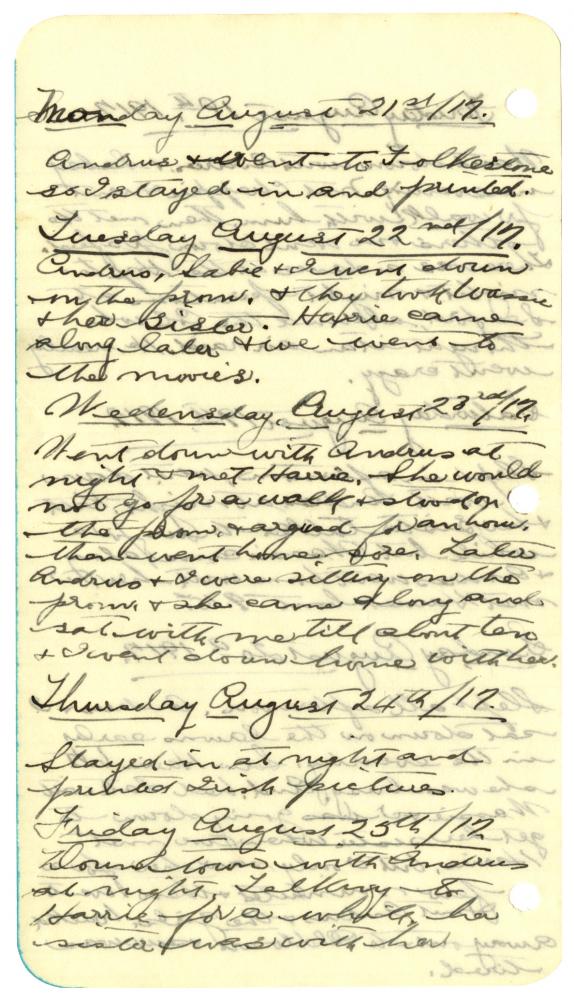 Monday August 21st/17.
Andrus & went to Folkestone
so I stayed in and printed.
Tuesday August 22nd/17.
Andrus, & I went down
on the prom. & they took
& her sister. Harrie came
along later & we went to
the movies.
Wedensday, August 23rd/17.
Went down with Andrus at
night & met Harrie. She would
not go for a walk & stood on
the prom. & argued for an hour.
then went home sore. Later
Andrus & I were sitting on the
prom. & she came along and
sat with me till about ten
& I went down home with her.
Thursday August 24th/17.
Stayed in at night and
printed Irish pictures.
Friday August 25th/17
Down town with Andrus
at night. Talking to
Harrie for a while, her
sister was with her